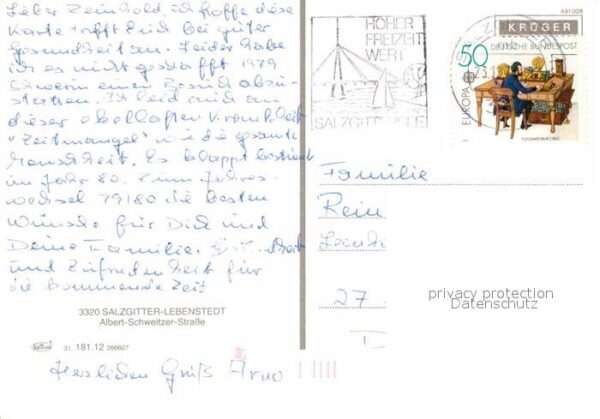 Lieber Reinhold, ich hoffe diese
Karte trifft Euch bei guter
Gesundheit an. Leider habe
ich es nicht geschafft 1979
Schwerin einen Besuch abzu-
statten. Ich leid auch an
dieser ekelhaften Krankheit
"Zeitmangel" wie die gesamte
Menschheit. Es klappt bestimmt
im Jahr 80. Zum Jahres-
wechsel 79/80 die besten
Wünsche für Dich und
Deine Familie.
und Zufriedenheit für
die kommende Zeit
3320 SALZGITTER-LEBENSTEDT
Albert-Schweitzer-Straße
31. 181.12 266607
Herzlichen Gruß Arno
HOHER
FREIZEIT
WERT
SALZGITTERSEE
481.009
KRÜGER
50
DEUTSCHE BUNDESPOST
EUROPA
Familie
Rein
27
privacy protection
Datenschutz